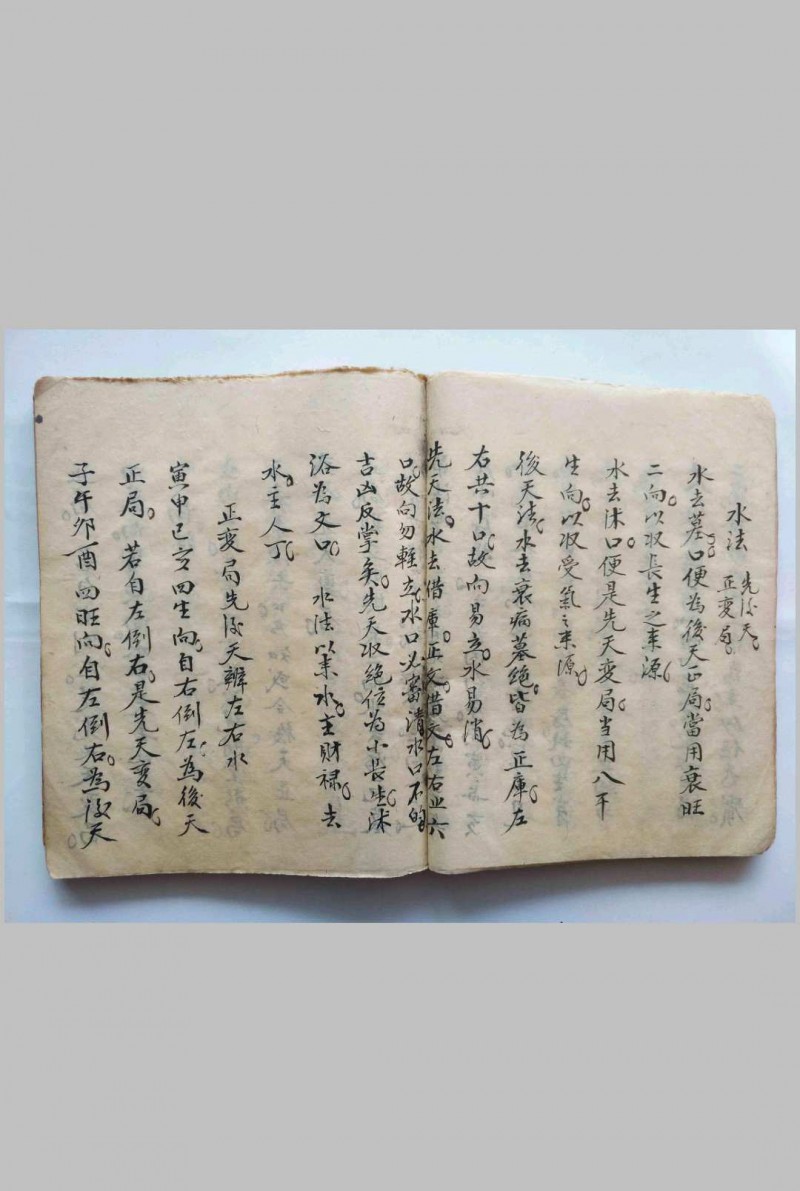 水法 先後天。正變局。
水去墓口便為後天正局。當用衰旺
二向。以収長生之来源
水去沐口。便是先天变局。当用八干
生向。以収受氣之来源。
後天法。水去衰病墓絶。皆為正庫。左
右共十口。故向易立。水易消。
先天法。水去借庫。正文借文。左右止六
口。故向勿軽立。水口必審清。水口不的。
吉凶反掌矣。先天収絶位為小長生。沐
浴為文口。水法以来水。主財禄。去
水。主人丁。
正変局先後天辨左右水
寅申巳亥四生向。自右倒左。為後天
正局。若自左倒右。是先天変局。
子午卯酉四旺向。自左倒右。為後天